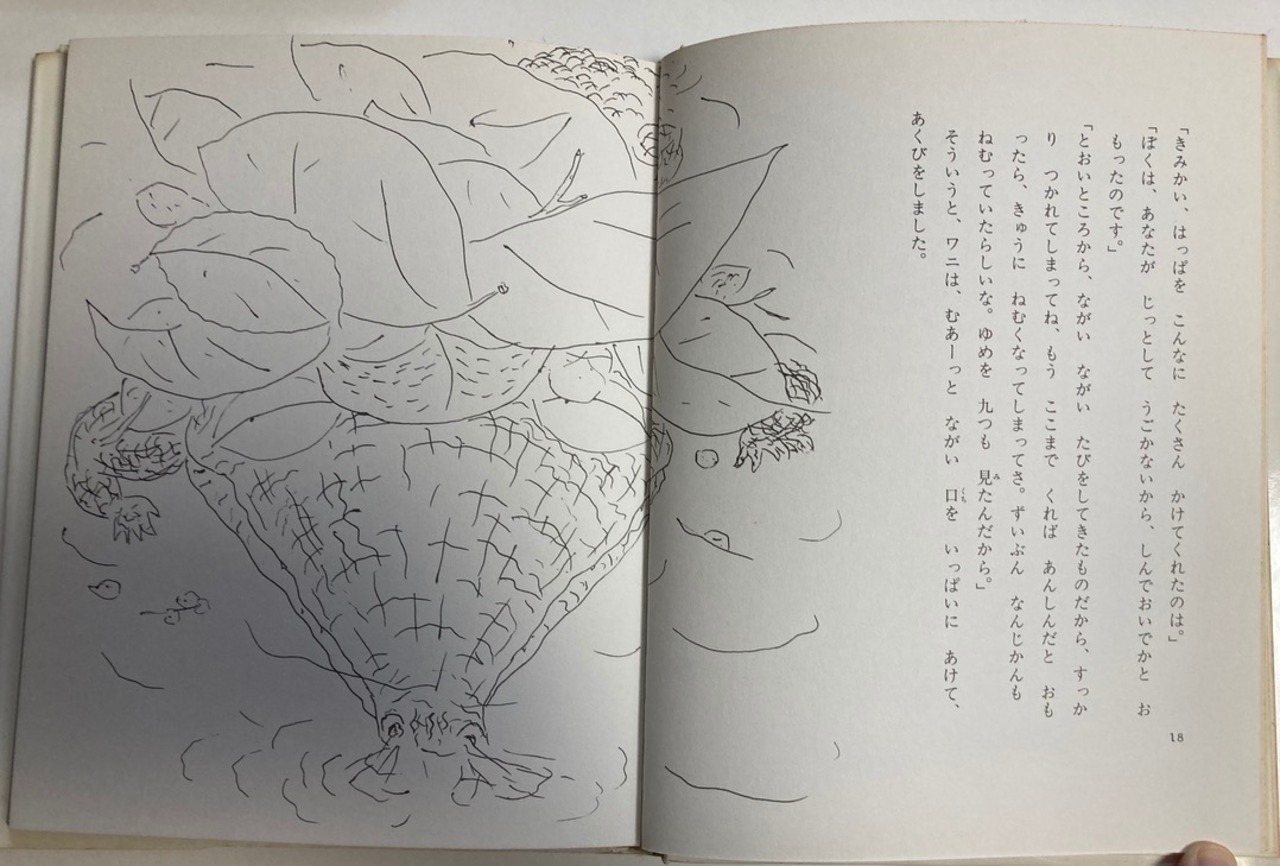 「きみかい、はっぱを　こんなに　たくさん　かけてくれたのは。」
「ぼくは、あなたが　じっとして　うごかないから、しんでおいでかと　お
もったのです。」
「とおいところから、ながい　ながい　たびをしてきたものだから、すっか
り　つかれてしまってね、もう　ここまで　くれば　あんしんだと　おも
ったら、きゅうに　ねむくなってしまってさ。ずいぶん　なんじかんも
ねむっていたらしいな。ゆめを　九つも　見たんだから。」
み
そういうと、ワニは、むあーっと　ながい　口を　いっぱいに　あけて、
くち
あくびをしました。
18